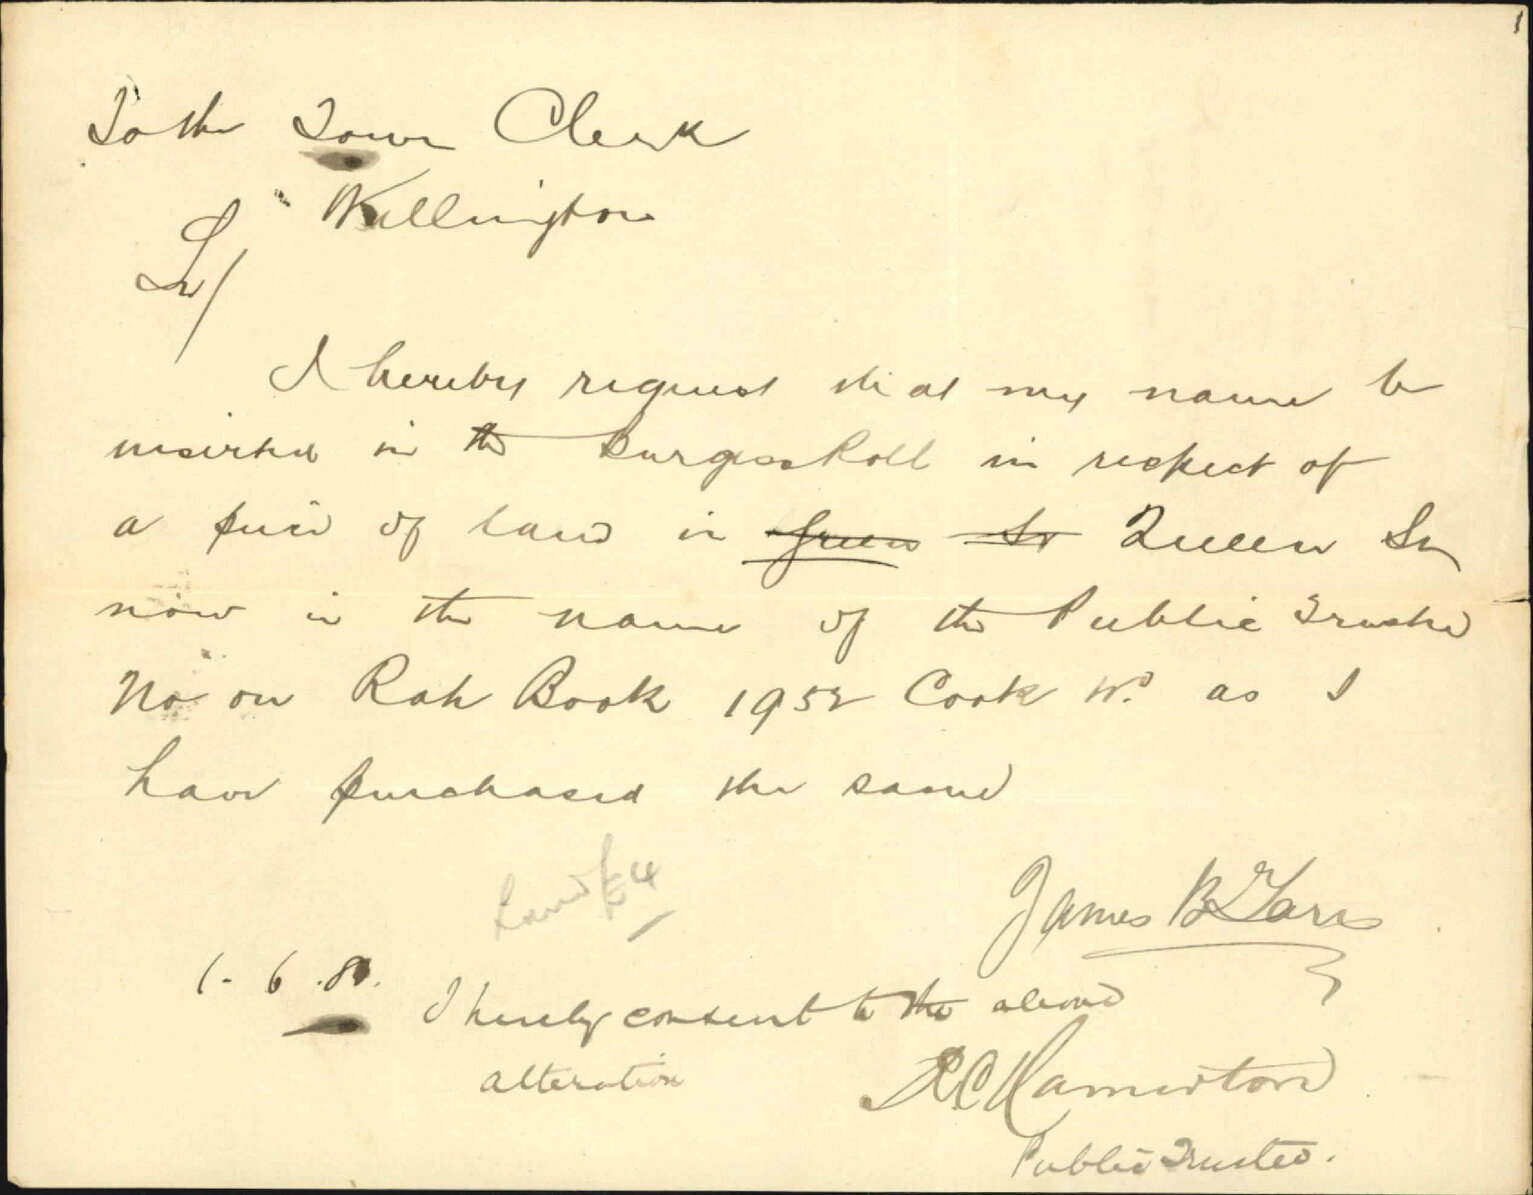 To the Town Clerk
Wellington
Sir/
I hereby request that my name be
inserted in the Burgess Roll in respect of
a piece of land in Green St Queen St
now in the name of the Public Trustee
No on Rate Book 1952 Cook Wd. as I
have purchased the same
Land £54
James B
1. 6 .81.
I hereby consent to the above
alteration
R C Hamerton
Public Trustee.